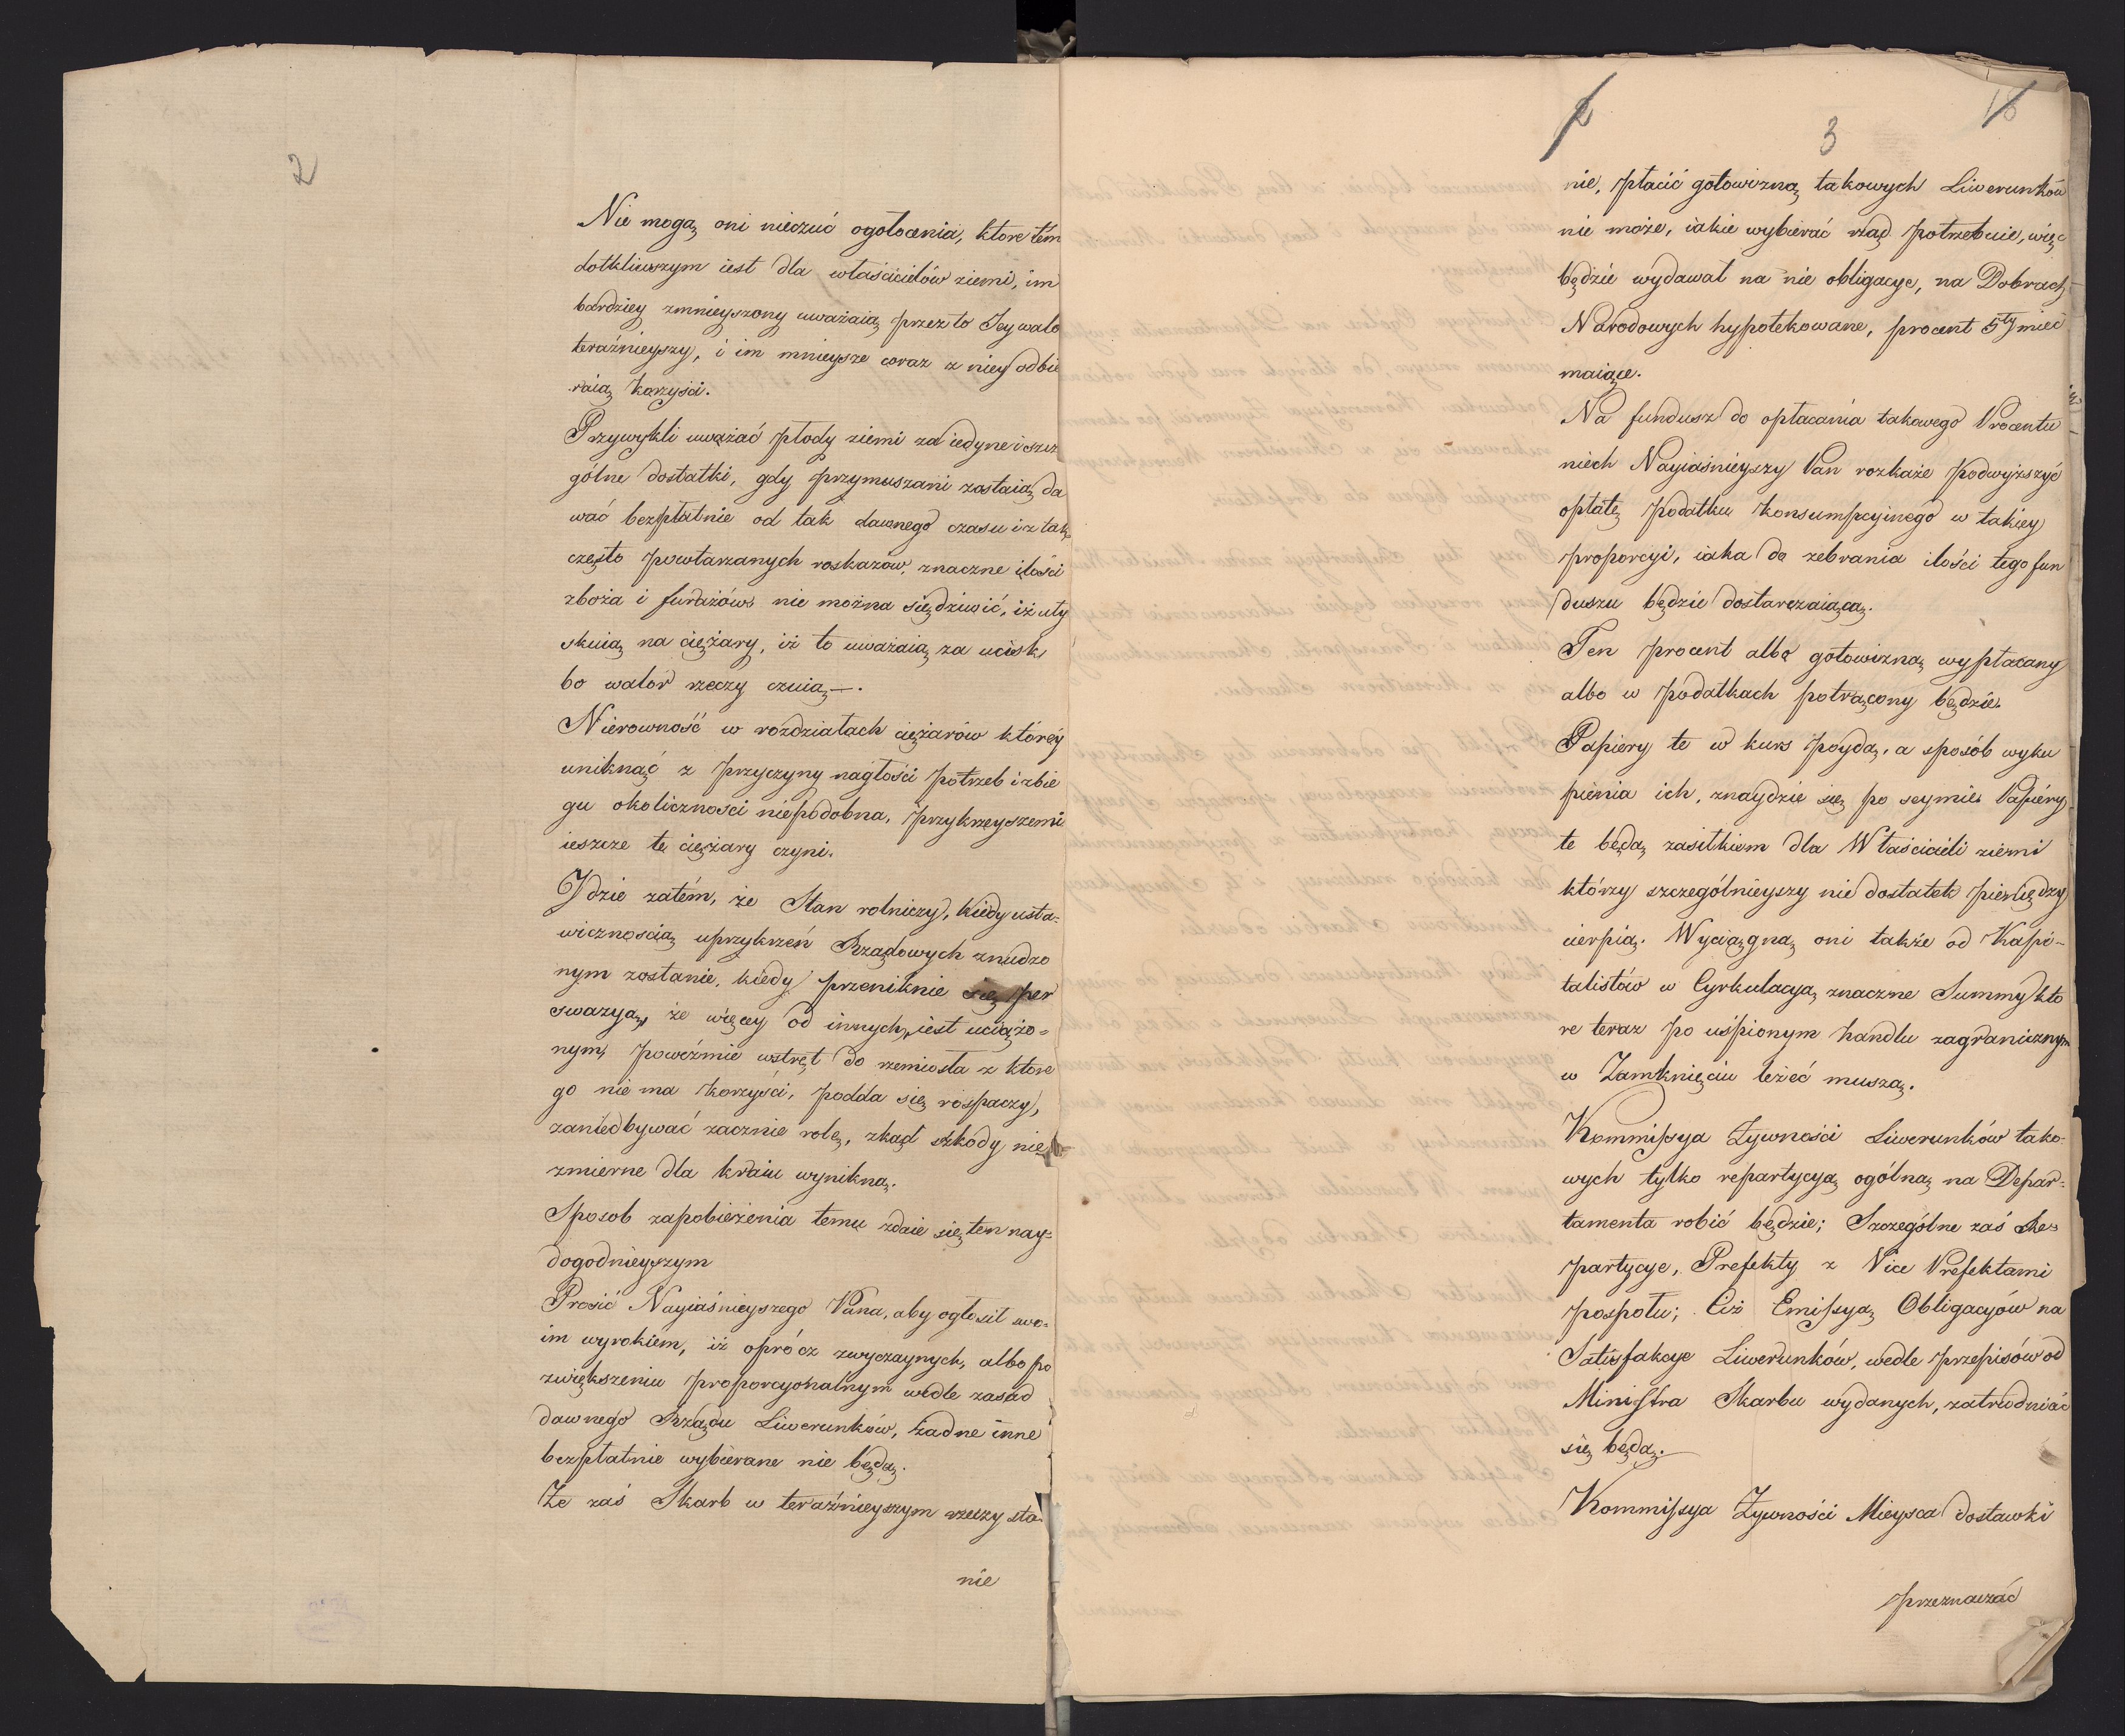 2
Nie mogą oni nieczuć ogołocenia, ktore tém
dotkliwszym iest dla właścicielów ziemi, im
bardziey zmnieyszony uważaią przez to Jey walo
teraźnieyszy, i im mnieysze coraz z niey odbie
raią korzyści.
Przywykli uważać płody ziemi za iedyne i szcze
gólne dostatki, gdy przymuszani zostaią da
wać bezpłatnie od tak dawnego czasu i z tak
często powtarzanych roskazów, znaczne ilości
zboża i furażów nie można się dziwić, iż uty
skuią na ciężary, iż to uważaią za ucisk,
bo walor rzeczy czuią –.
Nierowność w rozdziałach ciężarów któréy
uniknąć z przyczyny nagłości potrzeb i zbie
gu okoliczności niepodobna, przykrzeyszemi
ieszcze te ciężary czyni.
Jdzie zatém, że Stan rolniczy, kiedy usta-
wicznością uprzykrzeń Rządowych znudzo
nym zostanie, kiedy przeniknie się per
swazyą, że więcey od innych, iest uciążo-
nym, powéźmie wstręt do rzemiosła z które
go nie ma korzyści, podda się rospaczy,
zaniedbywać zacznie rolę, zkąd szkody nie
zmierne dla kraiu wynikną.
Sposob zapobieżenia temu zdaie się ten nay-
dogodnieyszym
Prosić Nayiaśnieyszego Pana, aby ogłosił swo-
im wyrokiem, iż oprócz zwyczaynych, albo po
zwiększeniu proporcyonalnym wedle zasad
dawnego Rządu Liwerunków, żadne inne
bezpłatnie wybierane nie będą.
Że zaś Skarb w teraźnieyszym rzeczy sta-
nie
2
3
18
nie, płacić gotowizną takowych Liwerunków
nie może, iakie wybierać rząd potrzebuie, więc
będzie wydawał na nie obligacye, na Dobrach
Narodowych hypotekowane, procent 5ty mieć
maiące.
Na fundusz do opłacania takowego Procentu
niech Nayiaśnieyszy Pan rozkaże podwyższyć
opłatę podatku konsumpcyinego w takiey
proporcyi, iaka do zebrania ilości tego fun
duszu będzie dostarczaiącą.
Ten procent albo gotowizną wypłacany
albo w podatkach potrącony będzie.
Papiery te w kurs poydą, a sposób wyku
pienia ich, znaydzie się po seymie. Papiéry
te będą zasiłkiem dla Właścicieli ziemi
którzy szczególnieyszy niedostatek pieniędzy
cierpią. Wyciągną oni także od Kapi-
talistów w Cyrkulacyą znaczne Summy kto
re teraz po uśpionym handlu zagranicznym
w Zamknięciu leżeć muszą.
Kommissya Żywności Liwerunków tako-
wych tylko repartycyą ogólną na Depar-
tamenta robić będzie; Szczególne zaś Re-
partycye, Prefekty z Vice Prefektami
pospołu; Ciż Emissyą Obligacyów na
Satisfakcye Liwerunków, wedle przepisów od
Ministra Skarbu wydanych, zatrudniać
się będą.
Kommissya Żywności Mieysca dostawki
przeznaczać